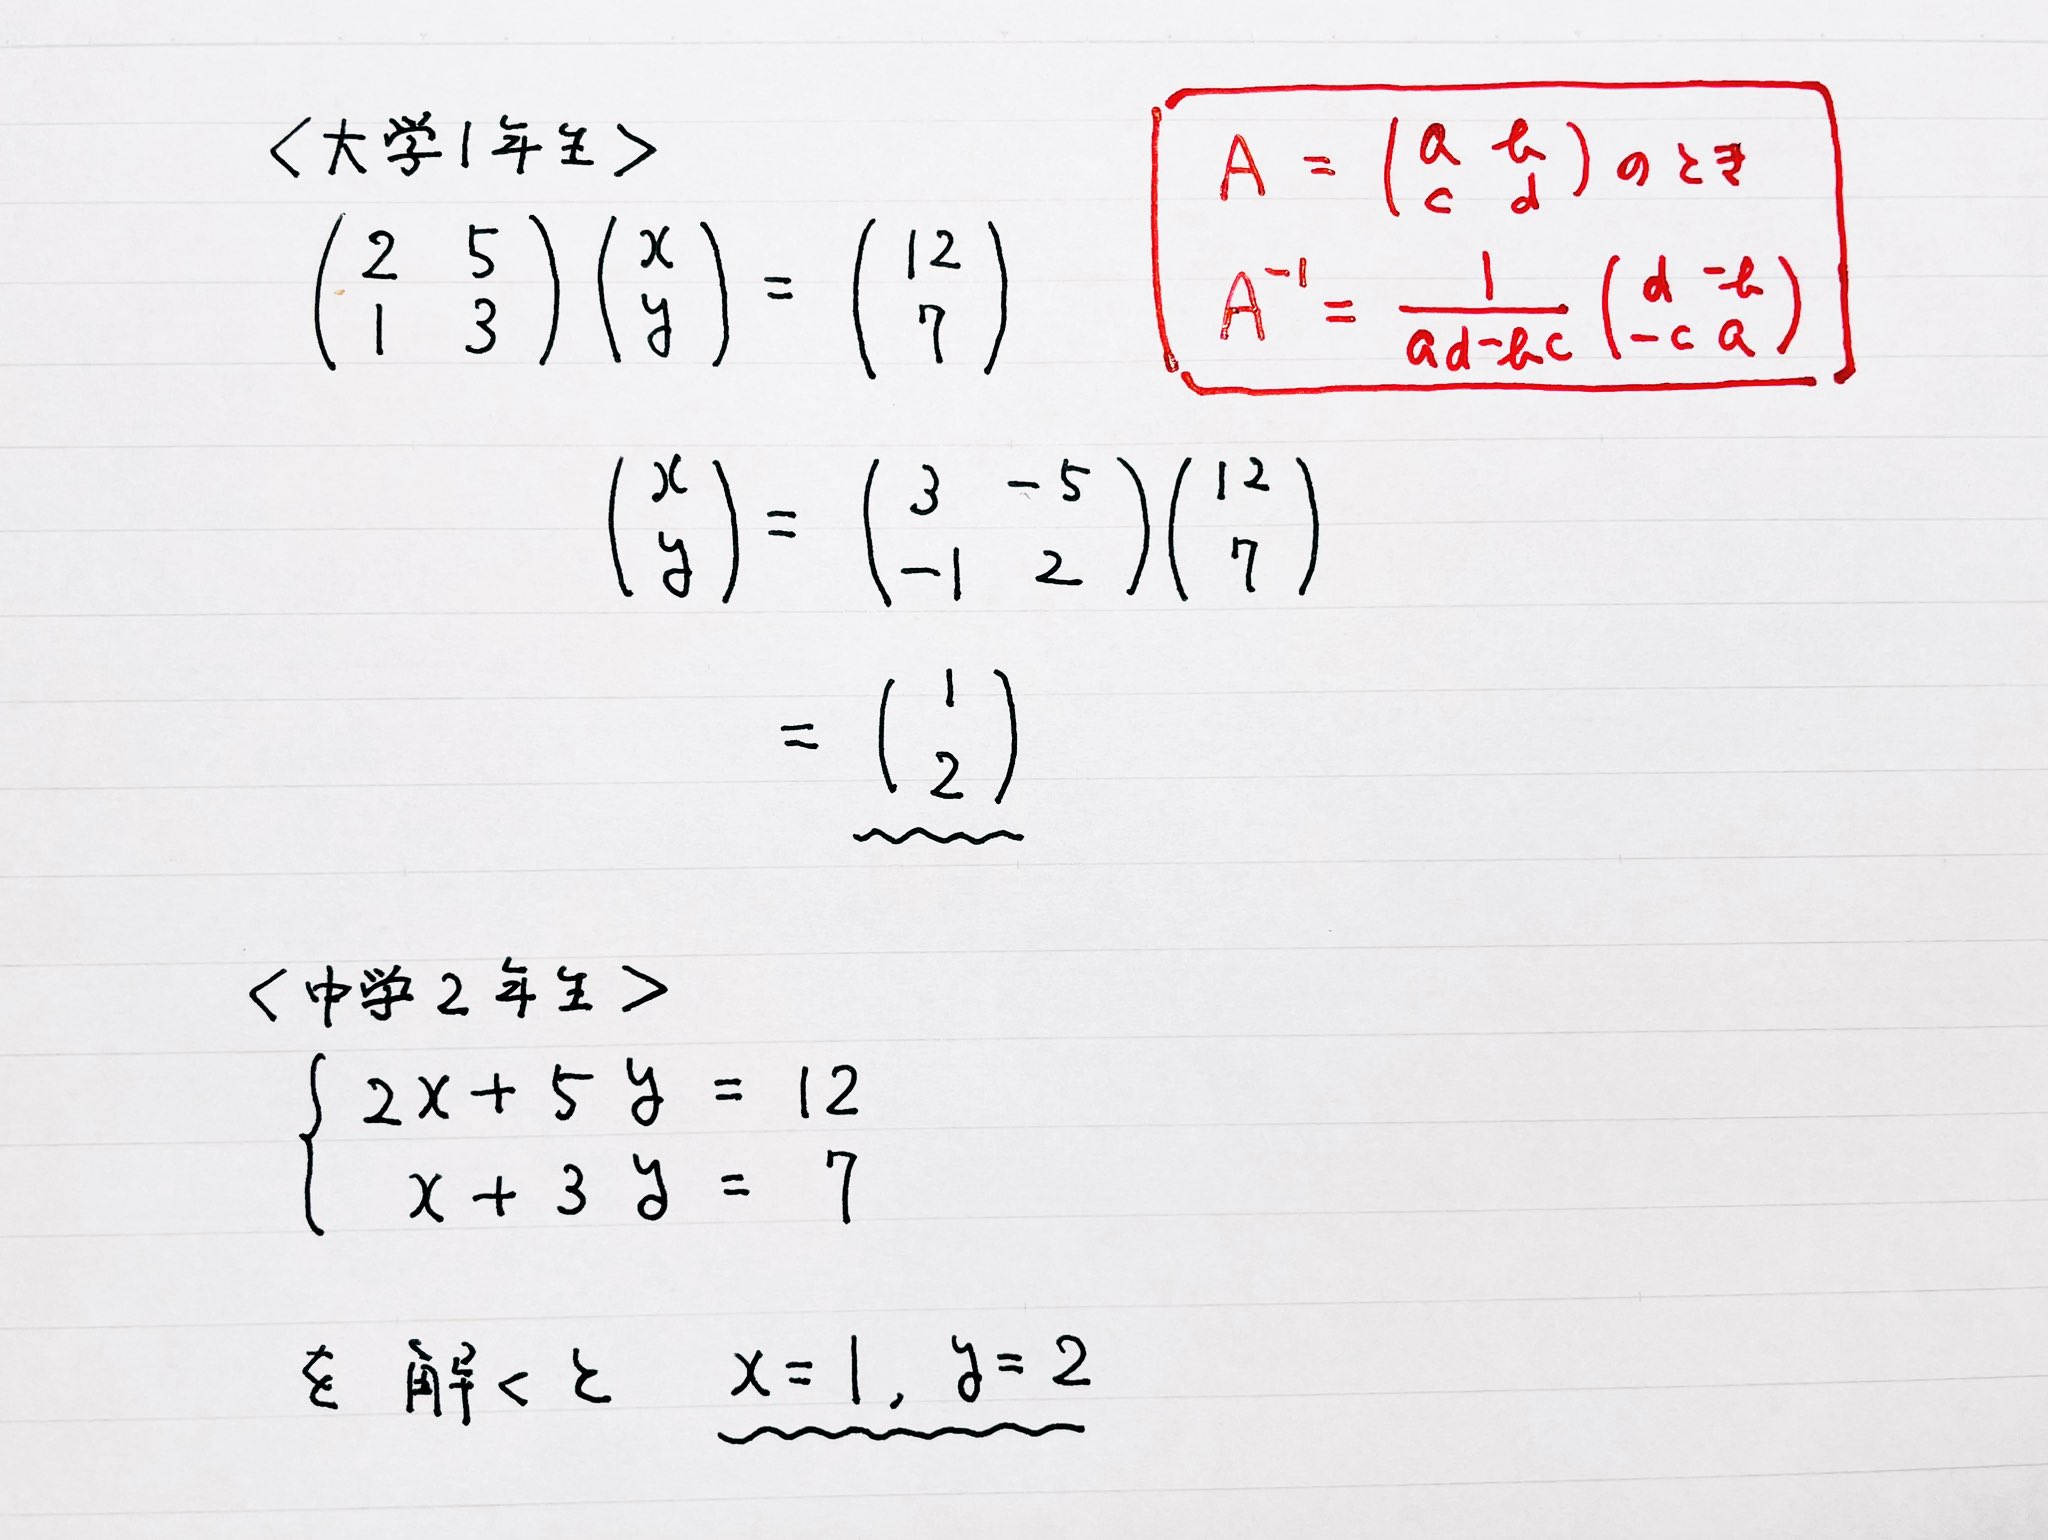 <大学1年生>
(2 5
1 3)(x
y) = (12
7)
A = (a b
c d)のとき
A⁻¹ = 1/(ad-bc) (d -b
-c a)
(x
y) = (3 -5
-1 2)(12
7)
= (1
2)
<中学2年生>
{2x + 5y = 12
x + 3y = 7
を解くと x=1, y=2